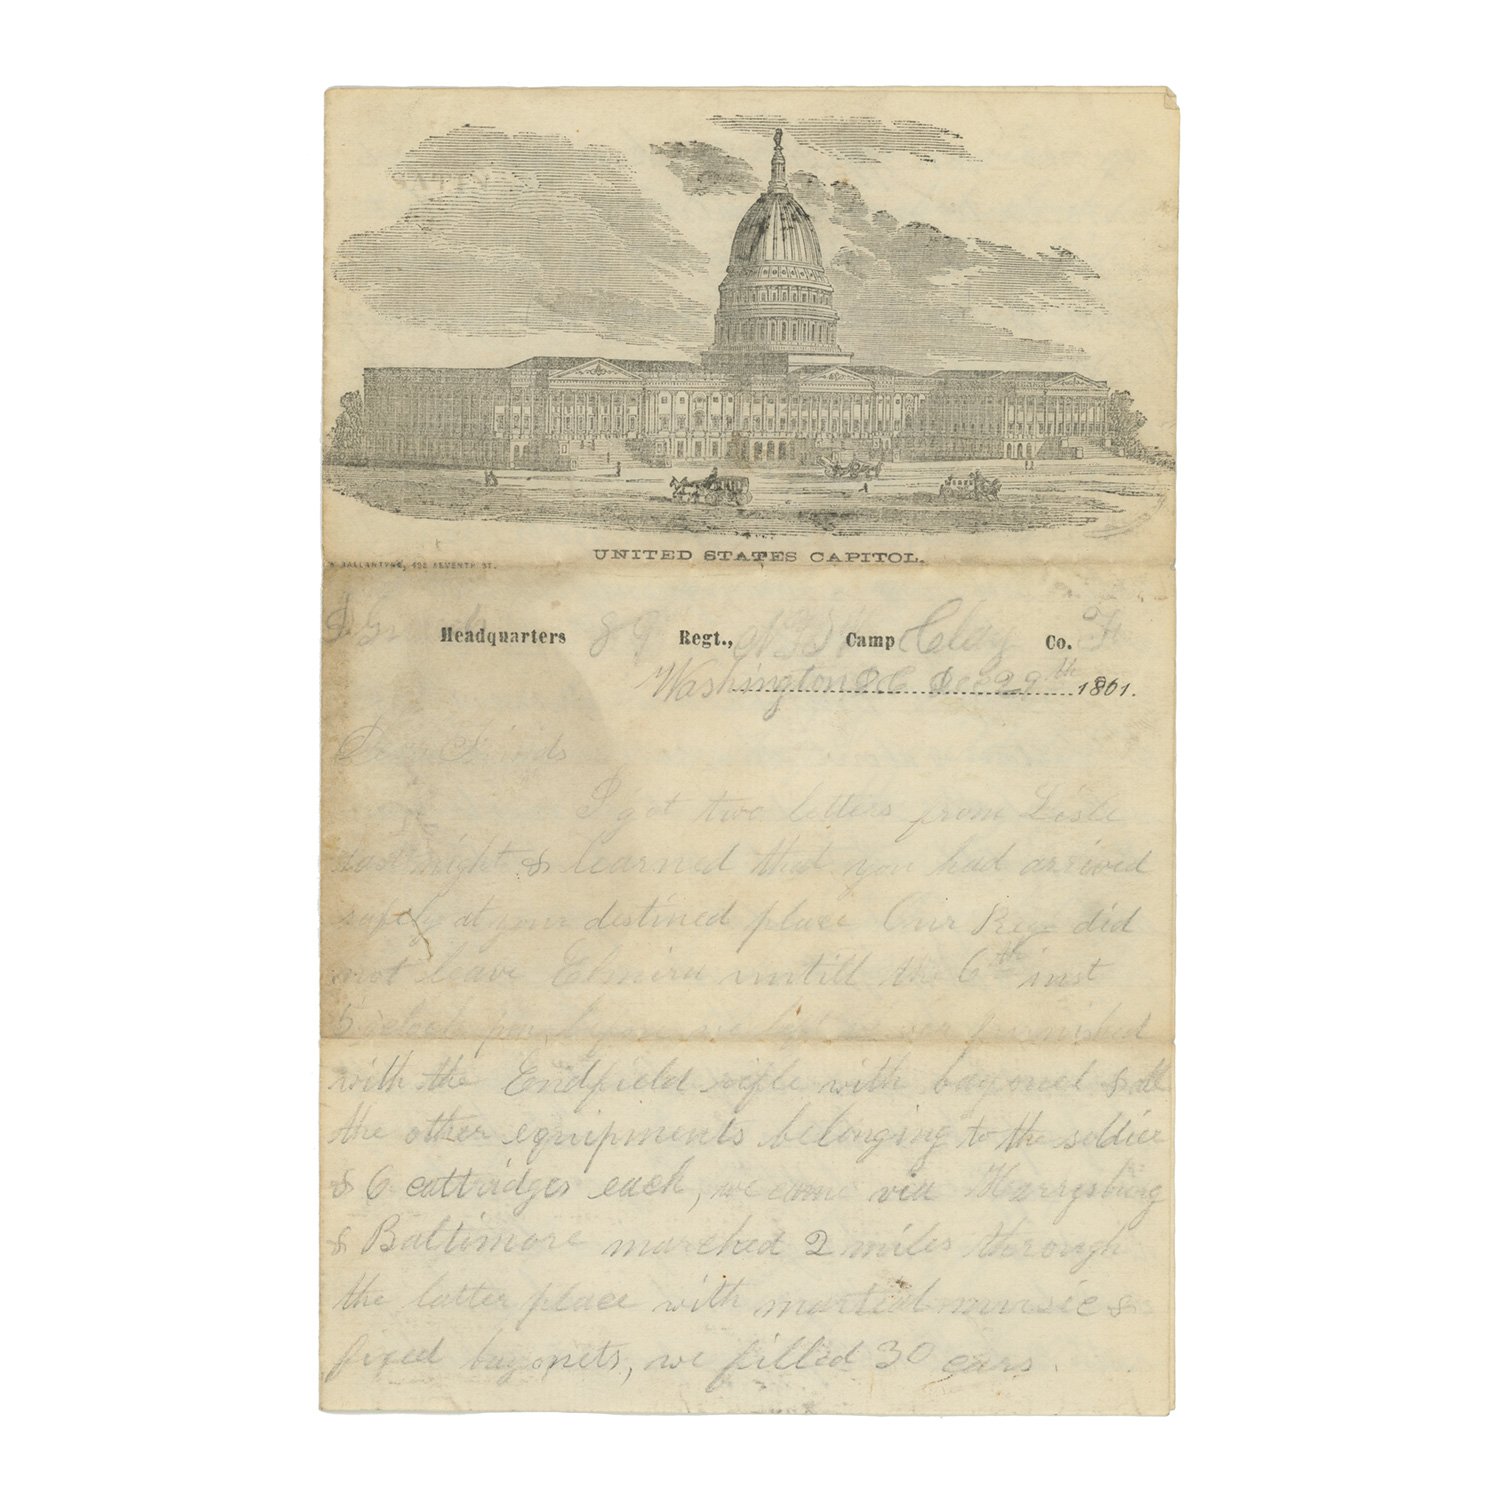 UNITED STATES CAPITOL.
BALLANTYNE, 498 SEVENTH ST.
Headquarters 89 Regt., NYSV Camp Clay Co. F
Washington DC Dec 29th 1861.
Dear Friends
I got two letters from Lisle
last night & learned that you had arrived
safely at your destined place Our Reg did
not leave Elmira untill the 6th inst
5 oclock pm, before we left we was furnished
with the Endfield rifle with bayonet & all
the other equipments belonging to the soldier
& 6 cattridges each, we came via Harrysburg
& Baltimore marched 2 miles through
the latter place with martial music &
fixed bayonets, we filled 30 cars.